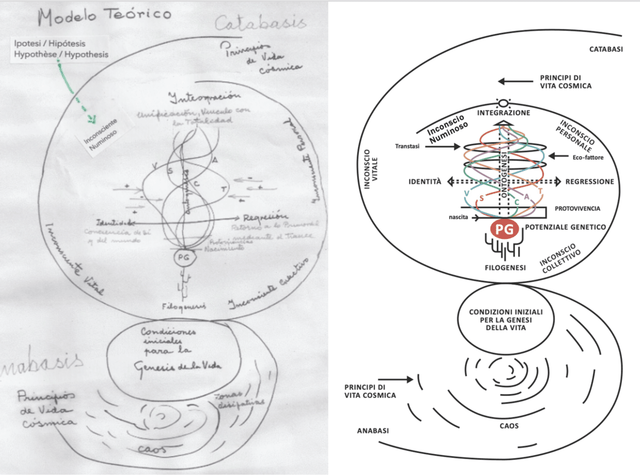 Modelo Teórico
Catabasis
Ipotesi / Hipótesis
Hypothèse / Hypothesis
Principios
de Vida
cósmica
Inconsciente
Numinoso
Integración
unificación, Vínculo con
la Totalidad
Inconsciente Personal
V
S
A
C
T
Identidad
Conciencia de sí
y del mundo
Regresión
Retorno a lo Primordial
mediante el Trance
Protovivencias
Nacimiento
PG
Filogenesis
Inconsciente Vital
Inconsciente Colectivo
Condiciones
iniciales
para la
Genesis de la Vida
Anabasis
Principios
de Vida
Cósmica
Zonas
disipativas
CAOS
CATABASI
PRINCIPI DI
VITA COSMICA
INTEGRAZIONE
Inconscio
Numinoso
INCONSCIO
PERSONALE
INCONSCIO
VITALE
Transtasi
ONTOGENESI
Eco-fattore
IDENTITÀ
REGRESSIONE
V
S
C
A
T
PROTOVIVENCIA
nascita
PG
POTENZIALE GENETICO
FILOGENESI
INCONSCIO
COLLETTIVO
CONDIZIONI INIZIALI
PER LA GENESI
DELLA VITA
PRINCIPI DI
VITA COSMICA
CAOS
ANABASI